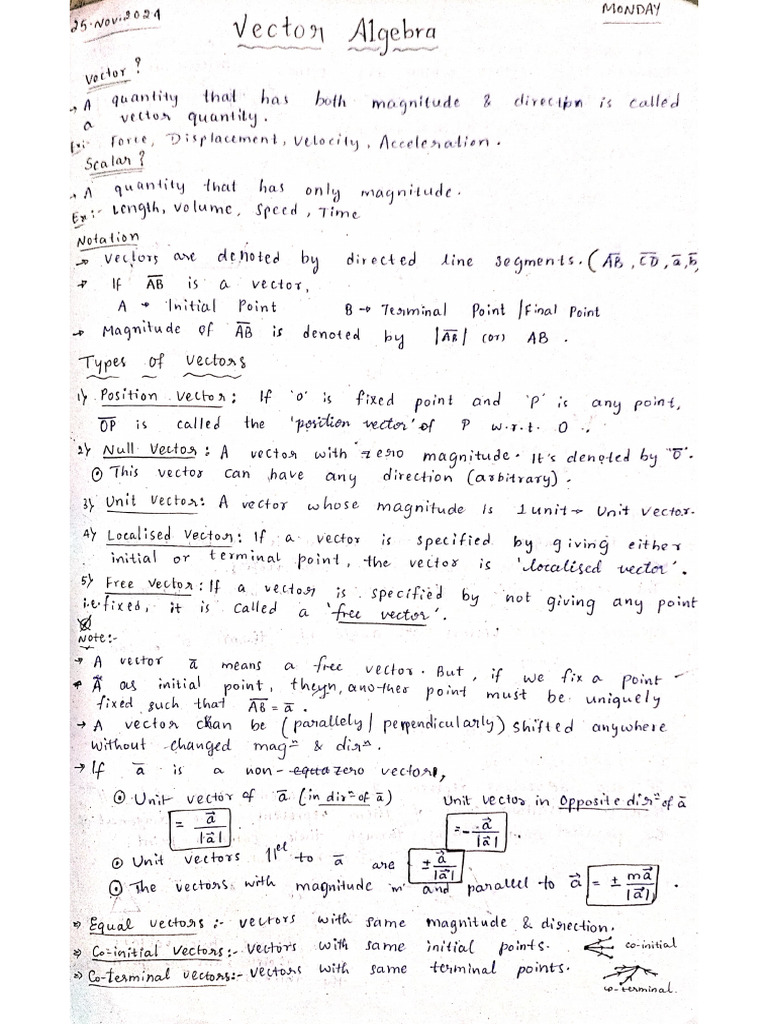 25-Nov-2024
MONDAY
Vector Algebra
Vector?
→ A quantity that has both magnitude & direction is called
a vector quantity.
Ex:- Force, Displacement, Velocity, Acceleration.
Scalar?
→ A quantity that has only magnitude.
Ex:- Length, Volume, Speed, Time
Notation
→ Vectors are denoted by directed line segments. (A̅B̅, C̅D̅, a̅, b̅,
→ If A̅B̅ is a vector,
A → Initial Point B → Terminal Point / Final Point
→ Magnitude of A̅B̅ is denoted by |A̅B̅| (or) AB.
Types of Vectors
1) Position Vector: If 'O' is fixed point and 'P' is any point,
O̅P̅ is called the 'position vector' of P w.r.t. O.
2) Null Vector: A vector with zero magnitude. It's denoted by "0̅".
⊙ This vector can have any direction (arbitrary).
3) Unit Vector: A vector whose magnitude is 1unit → Unit Vector.
4) Localised Vector: If a vector is specified by giving either
initial or terminal point, the vector is 'localised vector'.
5) Free Vector: If a vector is specified by not giving any point
i.e fixed, it is called a 'free vector'.
Note:-
→ A vector a̅ means a free vector. But, if we fix a point
A as initial point, theyn, another point must be uniquely
fixed such that A̅B̅ = a̅.
→ A vector can be (parallely / perpendicularly) shifted anywhere
without changed magⁿ & dirⁿ.
→ If a̅ is a non-equa zero vector,
⊙ Unit vector of a̅ (in dirⁿ of a̅) Unit vector in Opposite dirⁿ of a̅
= a⃗/|a⃗| . = -a⃗/|a⃗| .
⊙ Unit vectors ||el to a̅ are ± a⃗/|a⃗|
⊙ The vectors with magnitude 'm' and parallel to a⃗ = ± ma⃗/|a⃗| .
⇒ Equal vectors:- vectors with same magnitude & direction.
⇒ Co-initial vectors:- vectors with same initial points. co-initial
⇒ Co-terminal vectors:- vectors with same terminal points.
co-terminal.